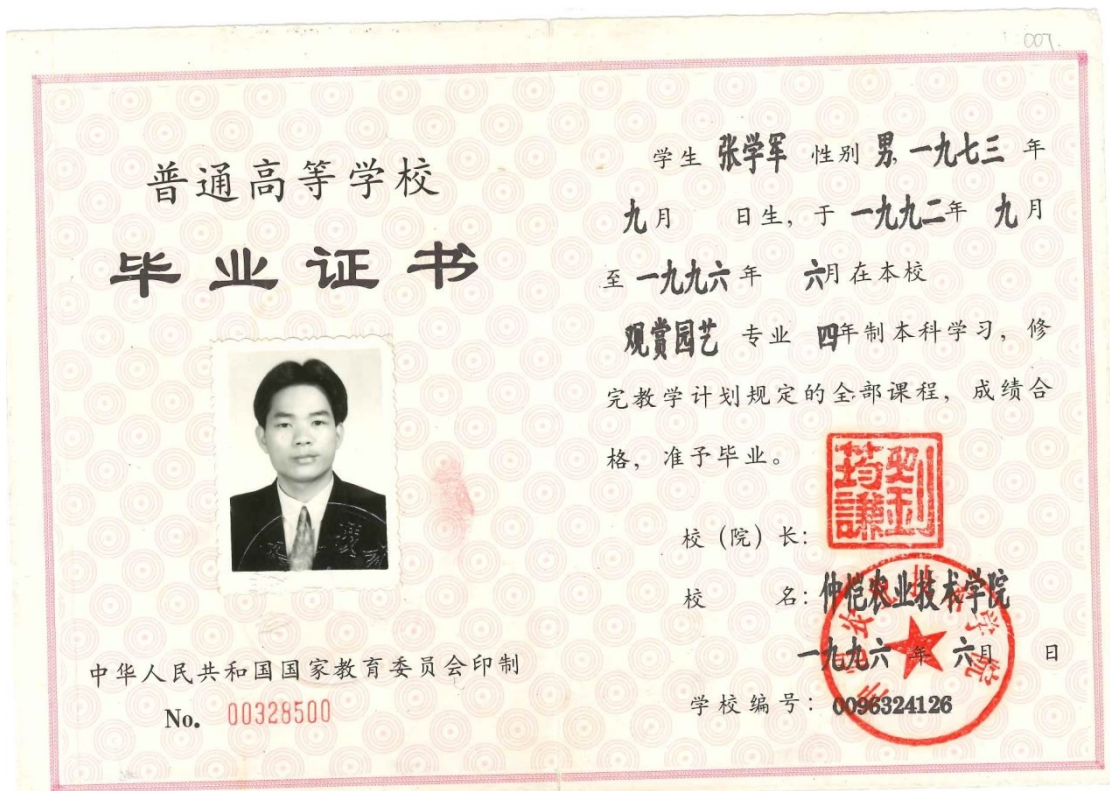 007.
普通高等学校
毕业证书
中华人民共和国国家教育委员会印制
No. 00328500
学生 张学军 性别 男, 一九七三 年
九月 日生, 于 一九九二年 九月
至 一九九六 年 六月在本校
观赏园艺 专业 四年制本科学习, 修
完教学计划规定的全部课程, 成绩合
格, 准予毕业。
校 (院) 长:
刘筠谦印
校 名: 仲恺农业技术学院
一九九六 年 六月 日
学校编号: 0096324126